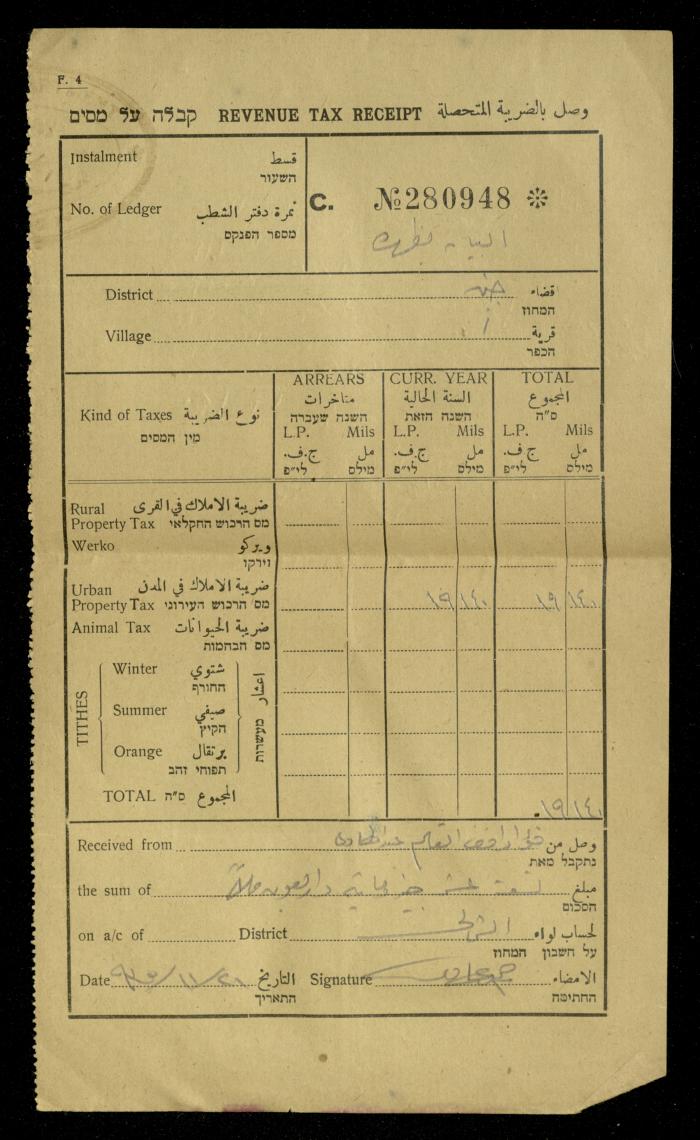 F. 4
קבלה על מסים REVENUE TAX RECEIPT وصل بالضريبة المتحصلة
Instalment قسط
השעור
No. of Ledger نمرة دفتر الشطب
מספר הפנקס
C. №280948
District قضاء
המחוז
Village قرية
הכפר
Kind of Taxes نوع الضريبة
מין המסים
ARREARS CURR. YEAR TOTAL
متاخرات السنة الحالية المجموع
השנה שעברה השנה הזאת ס"ה
L.P. Mils L.P. Mils L.P. Mils
ج.ف. مل ج.ف. مل ج.ف. مل
לי"פ מילס לי"פ מילס לי"פ מילס
Rural ضريبة الاملاك في القرى
Property Tax מס הרכוש החקלאי
Werko ويركو
וירקו
Urban ضريبة الاملاك في المدن
Property Tax מס הרכוש העירוני ١٩ ١٤٠ ١٩ ١٤٠
Animal Tax ضريبة الحيوانات
מס הבהמות
TITHES اعشار מעשרות
Winter شتوي
החורף
Summer صيفي
הקיץ
Orange برتقال
תפוחי זהב
TOTAL ס"ה المجموع ١٩ ١٤٠
Received from وصل من
נתקבל מאת
the sum of تسعة عشر جنيه ماية واربعون ملاً مبلغ
הסכום
on a/c of District لحساب لواء
על חשבון המחוז
Date ٩٣٥/١١/٢١ التاريخ Signature الامضاء
התאריך החתימה